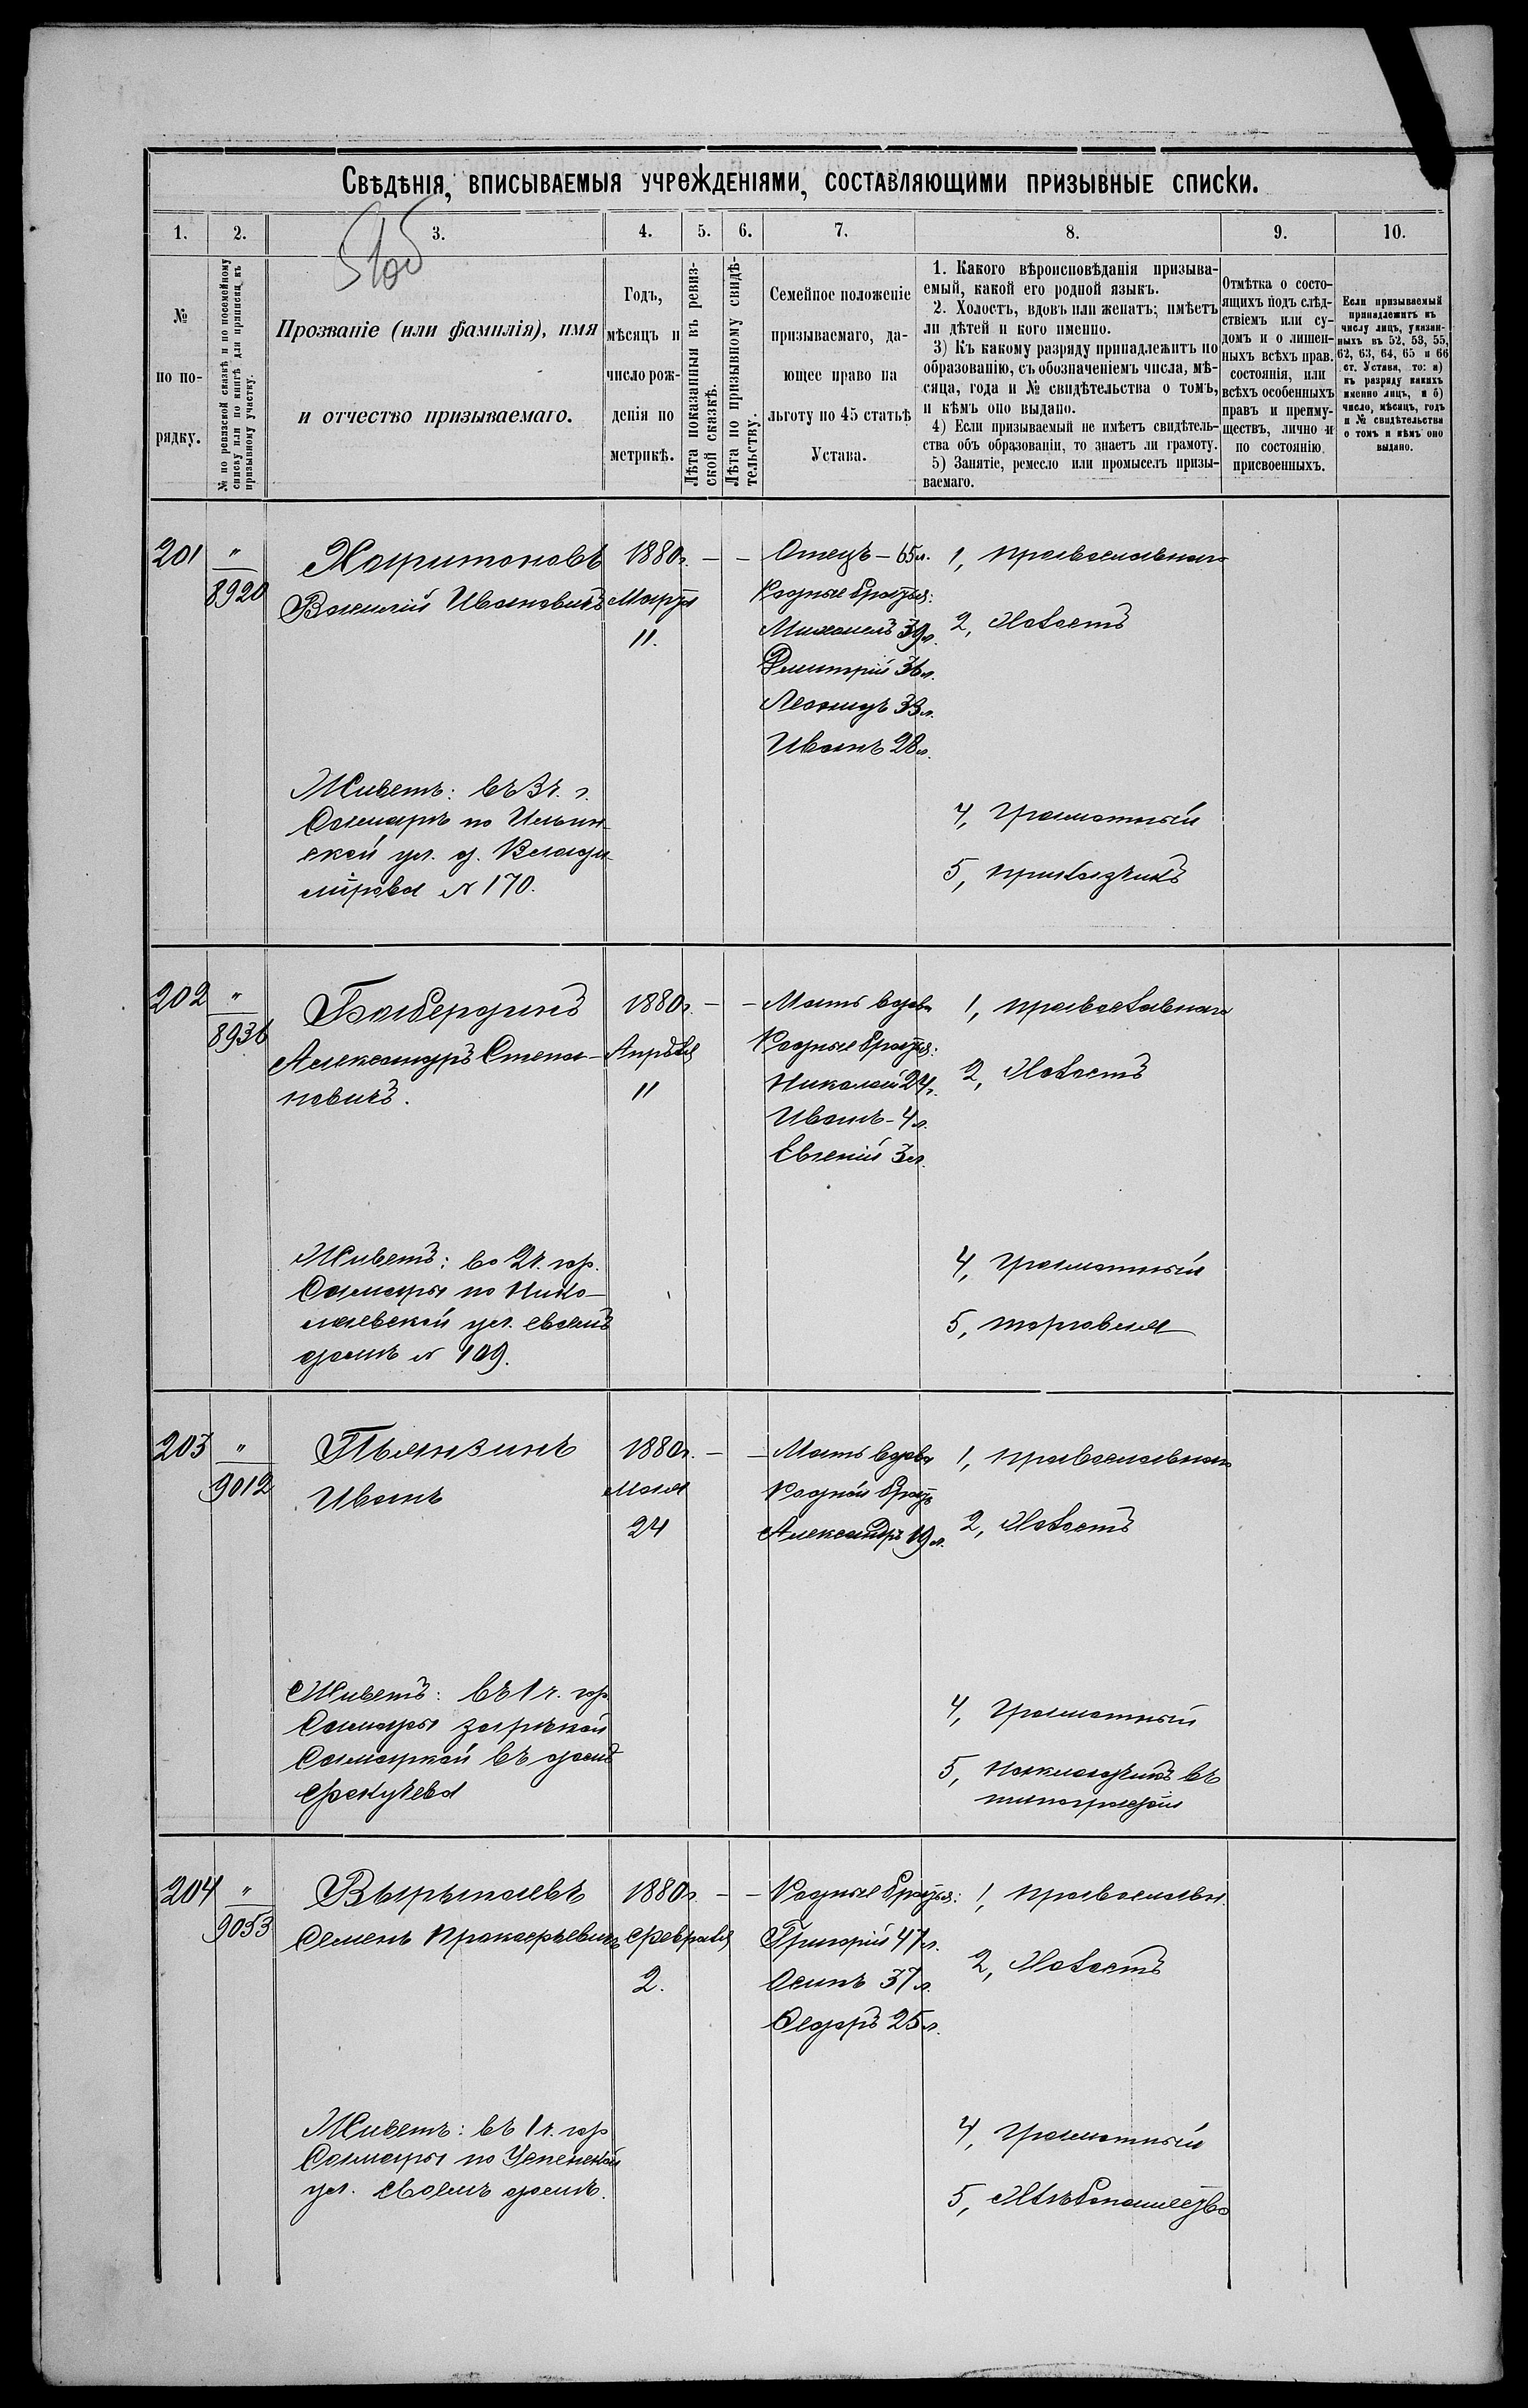 Свѣдѣнія, вписываемыя учрежденіями, составляющими призывные списки.
1. 2. 3. 4. 5. 6. 7. 8. 9. 10.
№
по по-
рядку.
№ по ревизской сказкѣ и по посемейному
списку или по книгѣ для приписки къ
призывному участку.
Прозваніе (или фамилія), имя
и отчество призываемаго.
Годъ,
мѣсяцъ и
число рож-
денія по
метрикѣ.
Лѣта показанныя въ ревиз-
ской сказкѣ.
Лѣта по призывному свидѣ-
тельству.
Семейное положеніе
призываемаго, да-
ющее право на
льготу по 45 статьѣ
Устава.
1. Какого вѣроисповѣданія призыва-
емый, какой его родной языкъ.
2. Холостъ, вдовъ или женатъ; имѣетъ
ли дѣтей и кого именно.
3) Къ какому разряду принадлежитъ по
образованію, съ обозначеніемъ числа, мѣ-
сяца, года и № свидѣтельства о томъ,
и кѣмъ оно выдано.
4) Если призываемый не имѣетъ свидѣтель-
ства объ образованіи, то знаетъ ли грамоту.
5) Занятіе, ремесло или промыселъ призы-
ваемаго.
Отмѣтка о состо-
ящихъ подъ слѣд-
ствіемъ или су-
домъ и о лишен-
ныхъ всѣхъ прав.
состоянія, или
всѣхъ особенныхъ
правъ и преиму-
ществъ, лично и
по состоянію
присвоенныхъ.
Если призываемый
принадлежитъ къ
числу лицъ, указан-
ныхъ въ 52, 53, 55,
62, 63, 64, 65 и 66
ст. Устава, то: а)
къ разряду какихъ
именно лицъ, и б)
число, мѣсяцъ, годъ
и № свидѣтельства
о томъ и кѣмъ оно
выдано.
201 " 8920
Харитоновъ
Василій Ивановичъ
1880г. — —
Марта
11.
Отецъ — 65 л.
Родные братья:
Михаилъ 39 л.
Дмитрій 36 л.
Леонидъ 33 л.
Иванъ 28 л.
1, православнаго
2, Холостъ
Живетъ: въ 3 ч. г.
Самары по Ильин-
ской ул. д. Влади-
мірова № 170.
4, Грамотный
5, приказчикъ
202 " 8936
Александръ Степа-
новичъ.
1880г. — —
Апрѣля
11
Мать вдова
Родные братья:
Николай 24 г.
Иванъ — 4 л.
Евгеній 3 л.
1, православнаго
2, Холостъ
Живетъ: во 2 ч. гор.
Самары по Нико-
лаевской ул. своемъ
домѣ № 109.
4, Грамотный
5, торговля
203 " 9012
Пьянзинъ
Иванъ
1880г. — —
Мая
24
Мать вдова
Родной братъ
Александръ 19 л.
1, православнаго
2, Холостъ
Живетъ: въ 1 ч. гор.
Самары за рѣкой
Самаркой въ домѣ
4, Грамотный
5, Накладчикъ въ
типографіи
204 " 9053
Вырыпаевъ
Семенъ Прокофьевичъ
1880г. — —
Февраля
2.
Родные братья:
Григорій 47 л.
Осипъ 37 л.
Федоръ 25 л.
1, православн.
2, Холостъ
Живетъ: въ 1 ч. гор
Самары по Успенской
ул. своемъ домѣ.
4, Грамотный
5, Хлѣбопашество